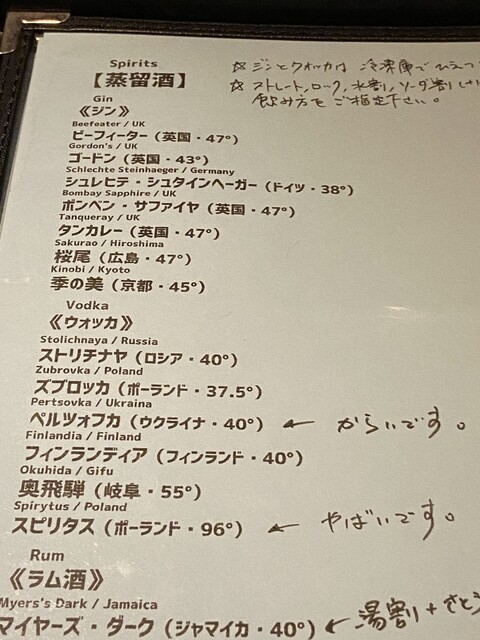 Spirits
【蒸留酒】
☆ ジンとウォッカは 冷凍庫で ひえ
☆ ストレート, ロック, 水割, ソーダ割
飲み方を ご指定下さい。
Gin
《ジン》
Beefeater / UK
ビーフィーター (英国・47°)
Gordon's / UK
ゴードン (英国・43°)
Schlechte Steinhaeger / Germany
シュレヒテ・シュタインヘーガー (ドイツ・38°)
Bombay Sapphire / UK
ボンベン・サファイヤ (英国・47°)
Tanqueray / UK
タンカレー (英国・47°)
Sakurao / Hiroshima
桜尾 (広島・47°)
Kinobi / Kyoto
季の美 (京都・45°)
Vodka
《ウォッカ》
Stolichnaya / Russia
ストリチナヤ (ロシア・40°)
Zubrovka / Poland
ズブロッカ (ポーランド・37.5°)
Pertsovka / Ukraina
ペルツォフカ (ウクライナ・40°) ← からいです。
Finlandia / Finland
フィンランディア (フィンランド・40°)
Okuhida / Gifu
奥飛騨 (岐阜・55°)
Spirytus / Poland
スピリタス (ポーランド・96°) ← やばいです。
Rum
《ラム酒》
Myers's Dark / Jamaica
マイヤーズ・ダーク (ジャマイカ・40°) ← 湯割り + さとう